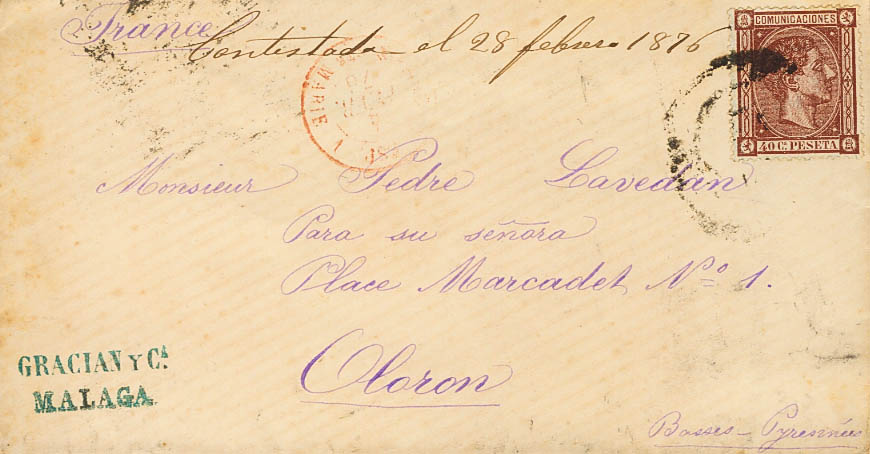 France
Contestada el 28 febrero 1876
COMUNICACIONES
40 Cs PESETA
Monsieur Pedre Lavedan
Para su señora
Place Marcadet Nº 1.
Oloron
GRACIAN Y Cª
MALAGA
Basses-Pyrennées